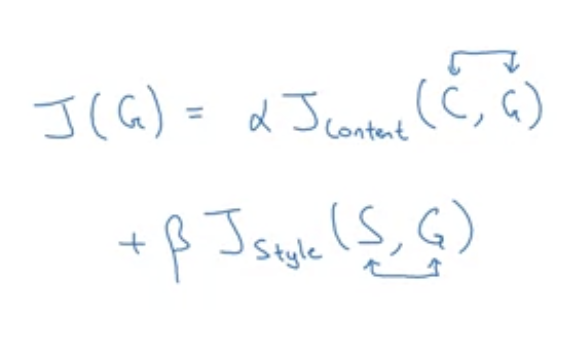 J(G) = α J_Content (C, G)
+ β J_Style (S, G)